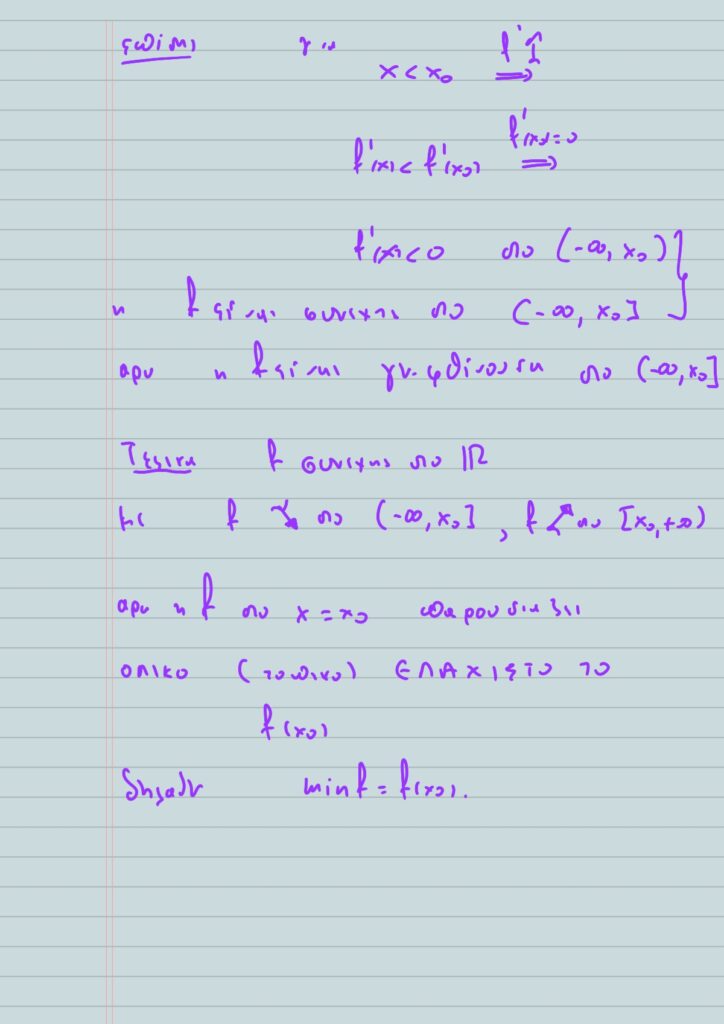 επίσης για f'↑
x < x₀ ⟹
f'(x) < f'(x₀) f'(x₀)=0 ⟹
f'(x) < 0 στο (-∞, x₀)
η f είναι συνεχης στο (-∞, x₀]
αρα η f είναι γν. φθίνουσα στο (-∞, x₀]
Τελικα f συνεχης στο ℝ
με f ↘ στο (-∞, x₀] , f ↗ στο [x₀, +∞)
αρα η f στο x = x₀ παρουσιαζει
ολικο (τοπικο) ΕΛΑΧΙΣΤΟ το
f(x₀)
δηλαδη min f = f(x₀).